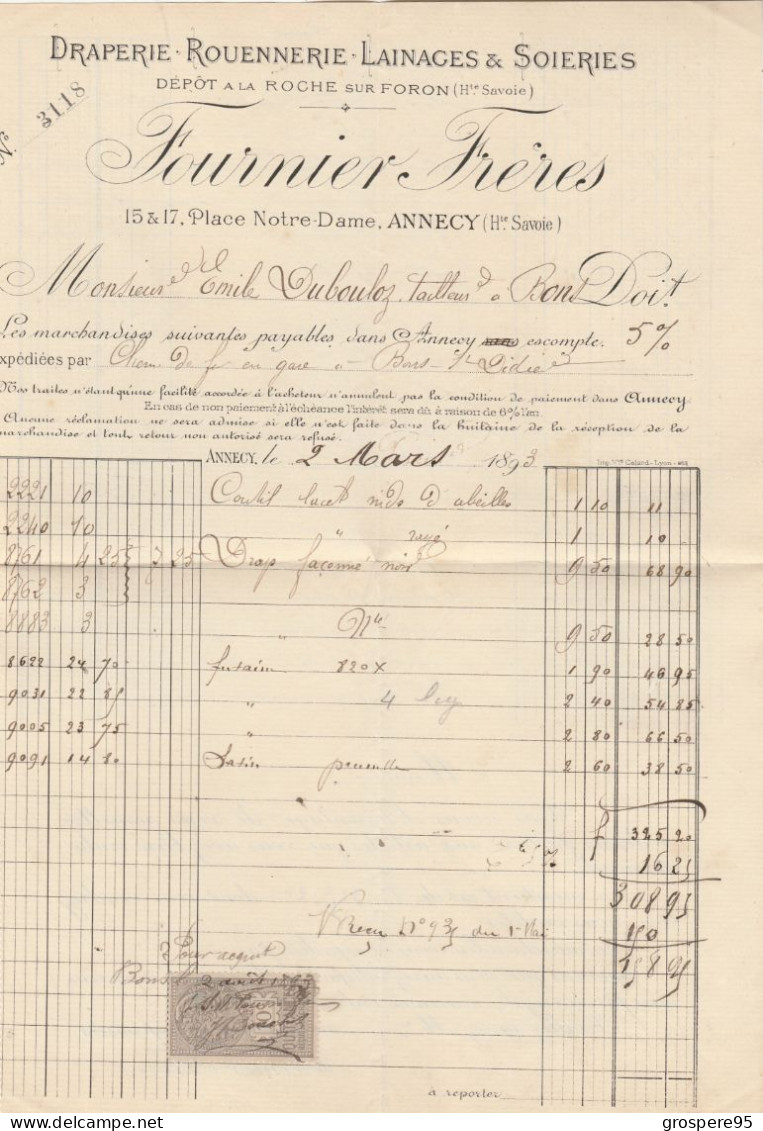 DRAPERIE - ROUENNERIE - LAINAGES & SOIERIES
DÉPÔT A LA ROCHE SUR FORON (Hte Savoie)
No. 3118
Fournier Frères
15 & 17, Place Notre-Dame, ANNECY (Hte Savoie)
Monsieur Emile Dubouloz, tailleur à Bons Doit
Les marchandises suivantes payables dans Annecy escompte. 5%
xpédiées par Chem. de fer en gare à Bons St Didier
Nos traites n'étant qu'une facilité accordée à l'acheteur n'annulent pas la condition de paiement dans Annecy.
En cas de non paiement à l'échéance l'intérêt sera dû à raison de 6% l'an.
Aucune réclamation ne sera admise si elle n'est faite dans la huitaine de la réception de la
marchandise et tout retour non autorisé sera refusé.
ANNECY, le 2 Mars 1893
2221 10 Coutil lacet nids d'abeilles 1 10 11
2240 10 " rayé 1 10
8761 4 25 } 7 25 Drap façonné noir 9 50 68 90
8762 3
8883 3 " 9 50 28 50
8622 24 70 futaine 820 X 1 90 46 95
9031 22 85 " 4 2 40 54 85
9005 23 75 " " 2 80 66 50
9091 14 80 Satin 2 60 38 50
f 325 20
5% 16 25
308 95
Reçu No 935 du 1er Mai 150
158 95
Pour acquit
Bons 2 août 1893
10
à reporter
grospere95